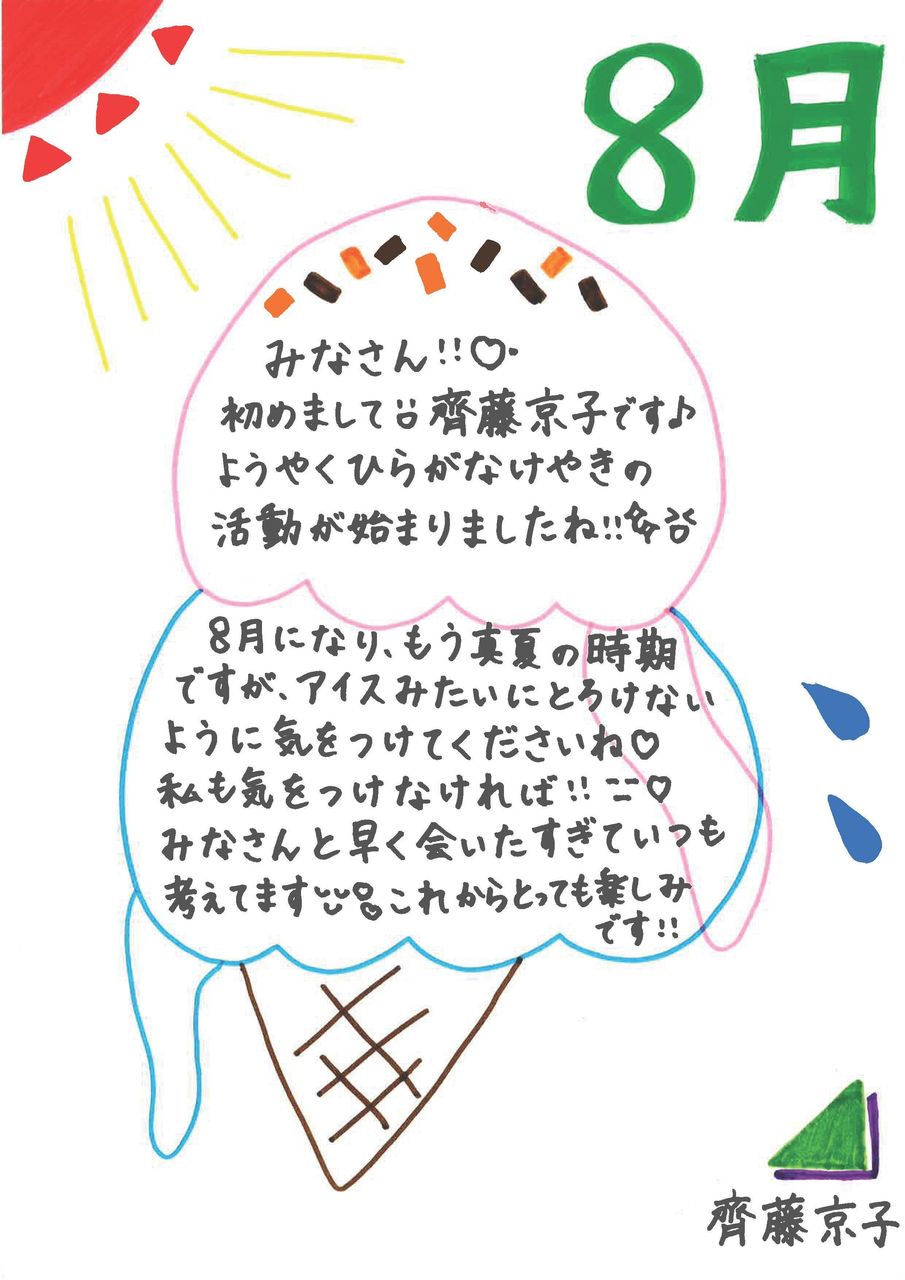 8月
みなさん!!♡
初めまして 齊藤京子です♪
ようやくひらがなけやきの
活動が始まりましたね!!
8月になり、もう真夏の時期
ですが、アイスみたいにとろけない
ように気をつけてくださいね♡
私も気をつけなければ!!♡
みなさんと早く会いたすぎていつも
考えてます これからとっても楽しみ
です!!
齊藤京子